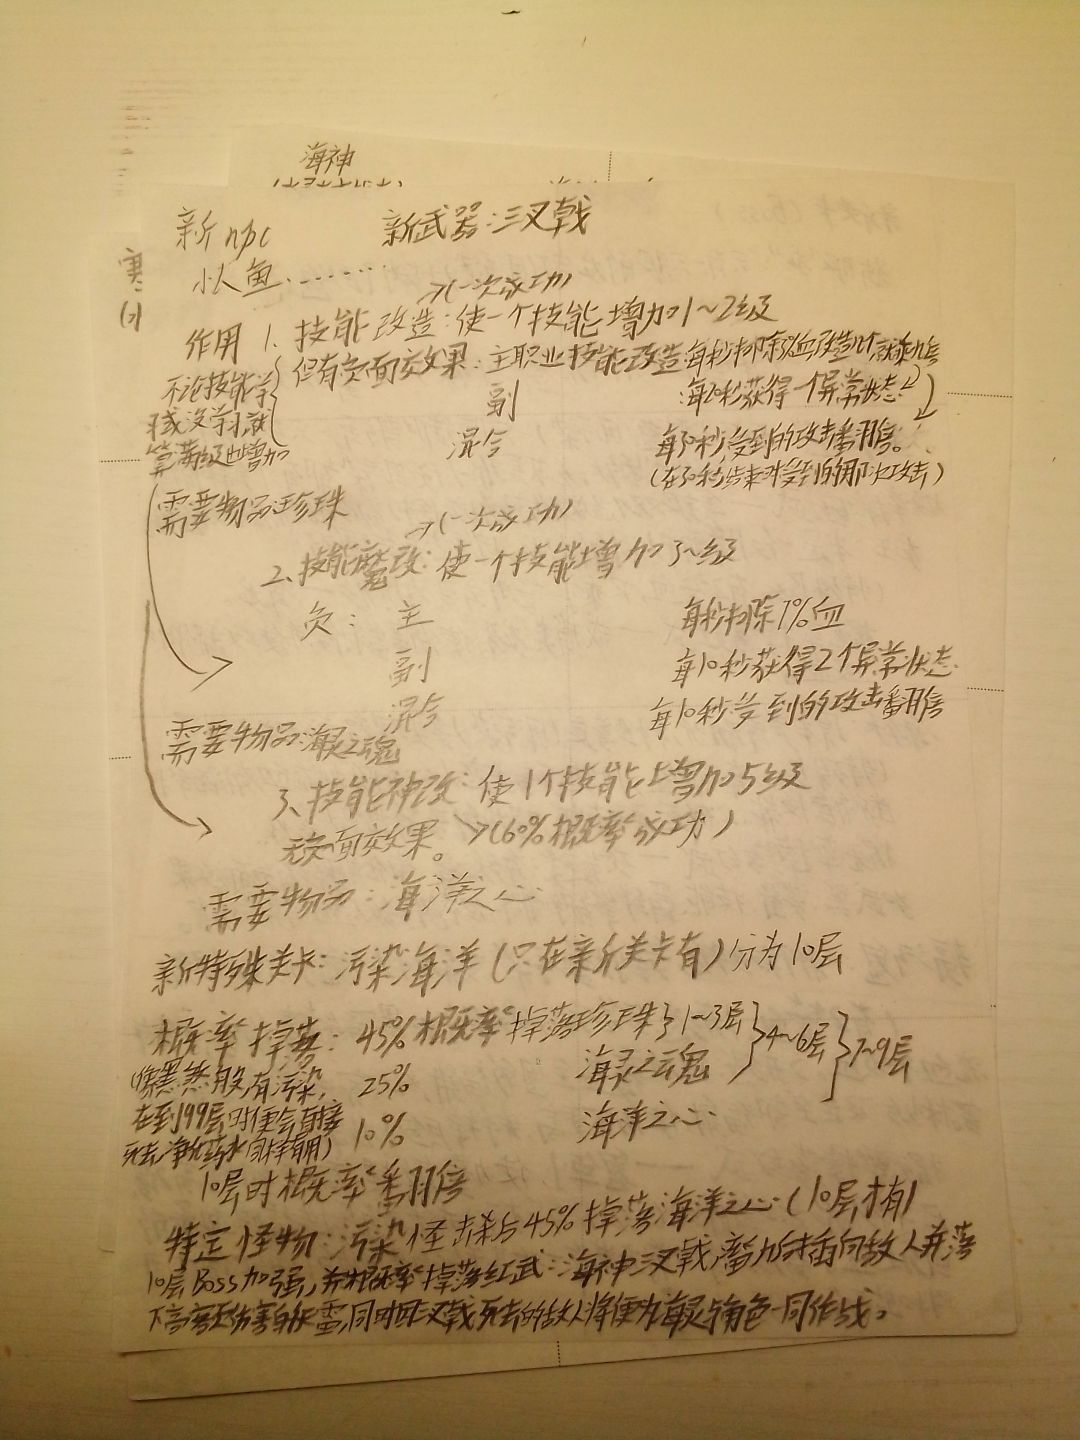 海神
新npc 新武器:三叉戟
小人鱼........
→(一次成功)
作用 1. 技能改造:使一个技能增加1~2级
但有负面效果:主职业技能改造:每秒扣除
不论技能学
副 每20秒获得一个异常状态
习或没学习,就
混合 每30秒受到的攻击翻倍。
算满级也增加
(在30秒结束时受到的那次攻击)
需要物品:珍珠
→(一次成功)
2、技能魔改:使一个技能增加3~级
负: 主 每秒扣除1%血
副 每10秒获得2个异常状态
混合 每10秒受到的攻击翻倍
需要物品:海灵之魂
3、技能神改:使1个技能增加5级
无负面效果。 →(60%概率成功)
需要物品:海洋之心
新特殊关卡:污染海洋(只在新关卡有)分为10层
概率掉落:45%概率掉落珍珠}1~3层}4~6层}7~9层
25% 海灵之魂
有污染,
在到99层时便会直接
10% 海洋之心
死去,净化药水同样有用)
10层时概率翻倍
特定怪物:污染怪击杀后45%掉落海洋之心(10层才有)
10层Boss加强,并概率掉落红武:海神三叉戟,蓄力后插向敌人并落
下高额伤害的水雷,同时因三叉戟死去的敌人将便为海灵与角色一同作战。